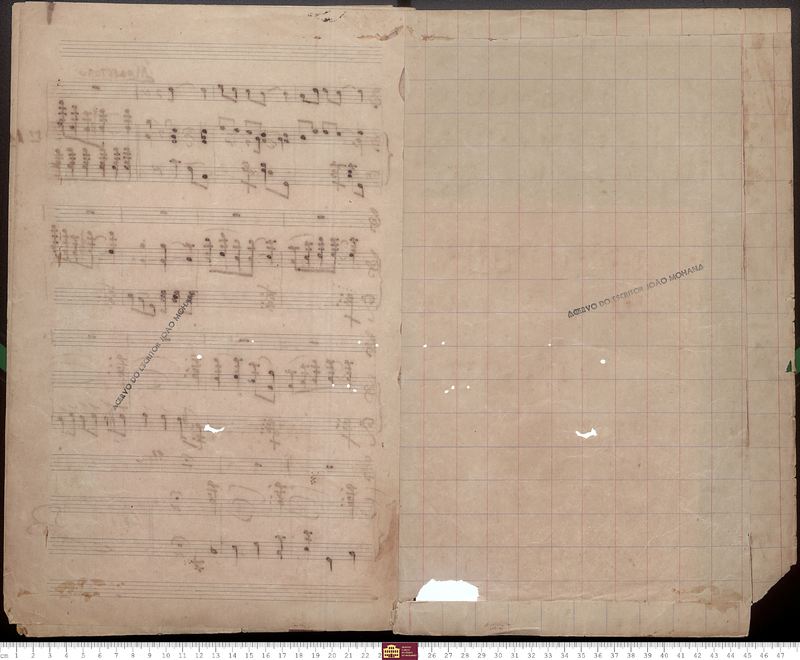 ACERVO DO ESCRITOR JOÃO MOHANA
ACERVO DO ESCRITOR JOÃO MOHANA
cm 1 2 3 4 5 6 7 8 9 10 11 12 13 14 15 16 17 18 19 20 21 22 26 27 28 29 30 31 32 33 34 35 36 37 38 39 40 41 42 43 44 45 46 47